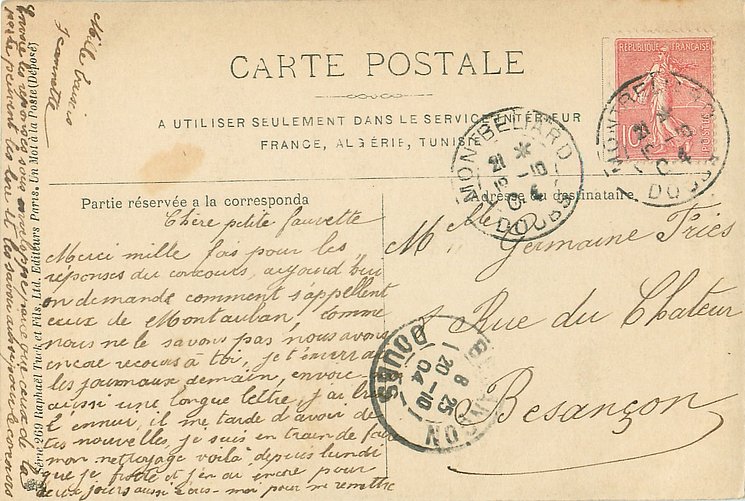 CARTE POSTALE
A UTILISER SEULEMENT DANS LE SERVICE INTÉRIEUR
FRANCE, ALGÉRIE, TUNISIE
RÉPUBLIQUE FRANÇAISE
10
POSTES
MONTBELIARD
DOUBS
MONTBELIARD
DOUBS
Partie réservée à la corresponda
Adresse du destinataire
Chère petite fauvette
Merci mille fois pour les
réponses du concours, aujourd'hui
on demande comment s'appellent
ceux de Montauban, comme
nous ne le savons pas, nous avons
encore recours à toi, je t'enverrai
les journaux demain, envoie
aussi une longue lettre, j'ai
l'ennui, il me tarde d'avoir de
tes nouvelle, je suis en train de
mon nettoyage voilà depuis lundi
que je frotte et j'en ai encore pour
deux jours aussi moi pour me remettre
Mlle Germaine Friès
Rue du Chateur
Besançon
BESANCON
DOUBS
8 25
20 -10
04
Mille baisers
Jeannette
Série 269 Raphaël Tuck et Fils, Ltd. Editeurs Paris. Un Mot à la Poste (Déposé)